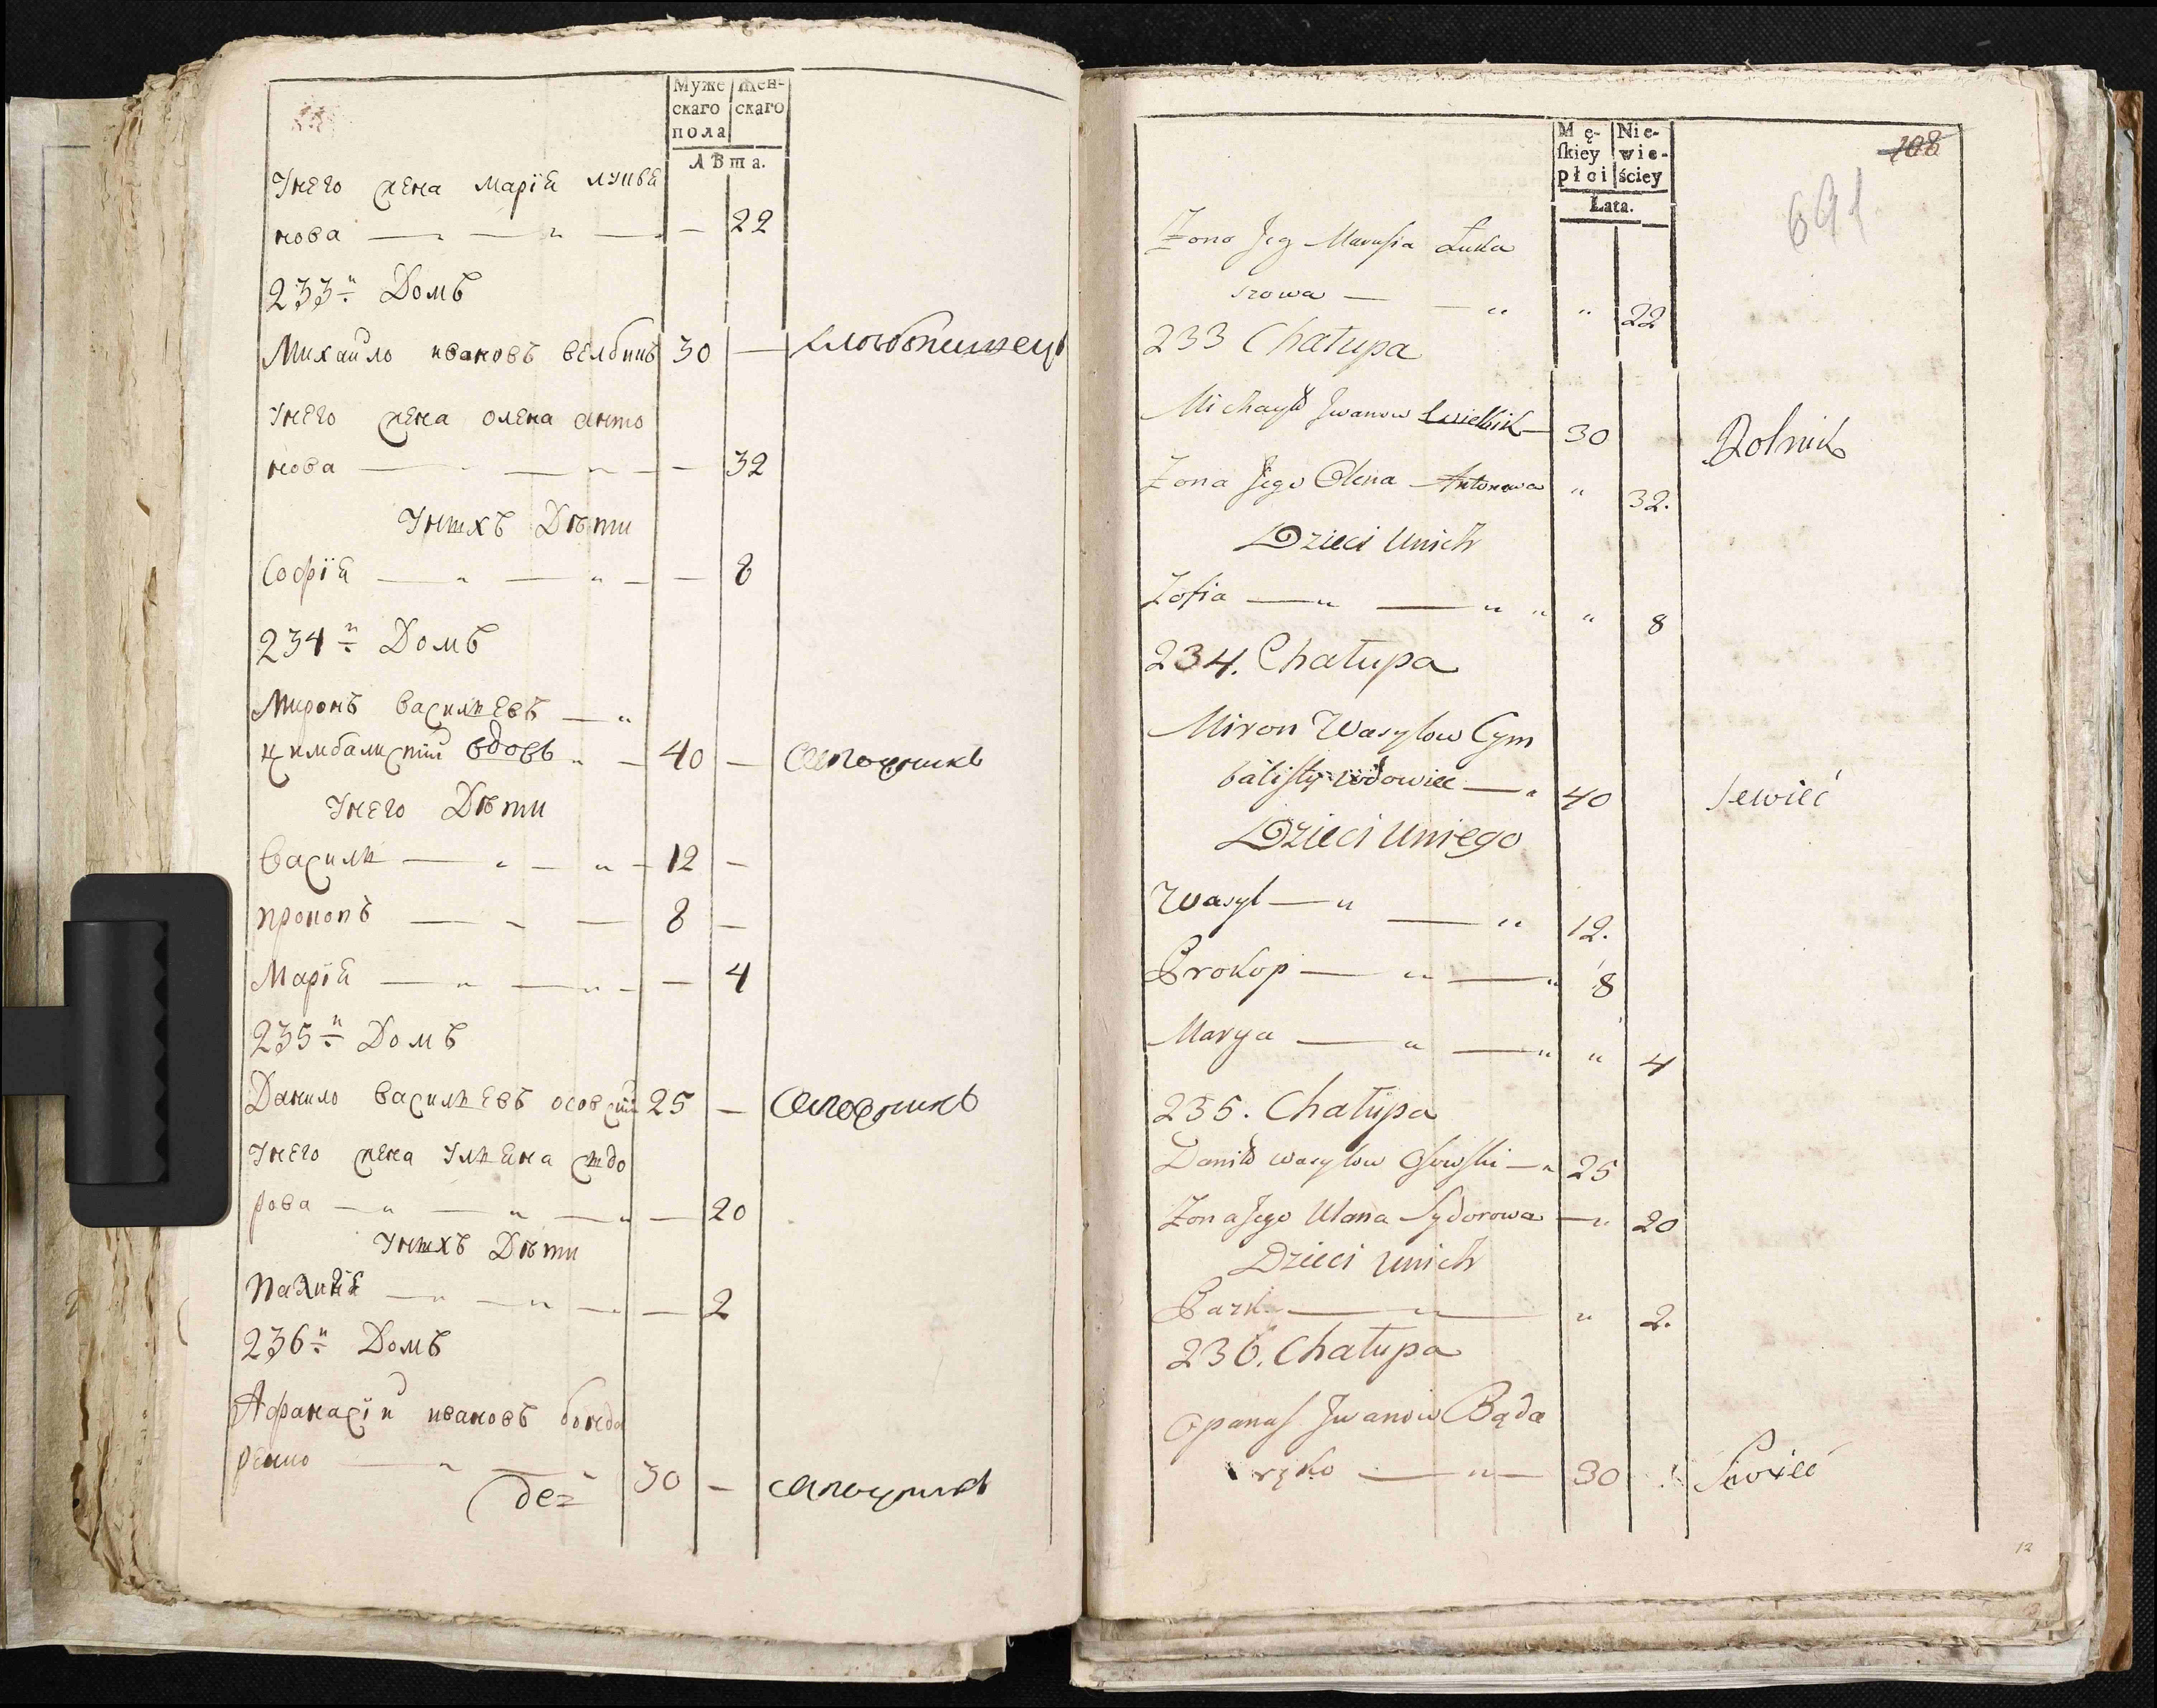 Муже
скаго
пола
Жен-
скаго
Лѣта.
Унего жена Марїя лукья
нова — 22
233й Домъ
Михайло ивановъ велбикъ 30 —
Унего жена олена анто
нова — 32
Унихъ Дѣти
Софїя — 8
234й Домъ
Миронъ василиевъ
цимбалистїй вдовъ 40 — сапожникъ
Унего Дѣти
василь 12 —
прокопъ 8 —
Марїя — 4
235й Домъ
Данило василиевъ осовскій 25 — сапожникъ
Унего жена Ульяна сидо
рова — 20
Унихъ Дѣти
— 2
236й Домъ
Афанасїй ивановъ бонда
ренко 30 — сапожникъ
Mę-
skiey
płci
Nie-
wie-
ściey
Łata.
108
691
Zona Jeg Marusia Luka
szowa " 22
233 Chałupa
Michayło Jwanow Łwielbik 30 Rolnik
Zona Jego Olena Antonowa " 32.
Dzieci Unich
Zofia " 8
234. Chałupa
Miron Wasylow Cym
balisty wdowiec 40 Sewieć
Dzieci Uniego
Wasyl 12.
Prokop 8
Marya " 4
235. Chałupa
Daniło wasylow Osowski 25
Zona Jego Ulana Sydorowa 20
Dzieci Unich
" 2.
236. Chałupa
Opanas Jwanow Bąda
ręko 30 Swieć
12